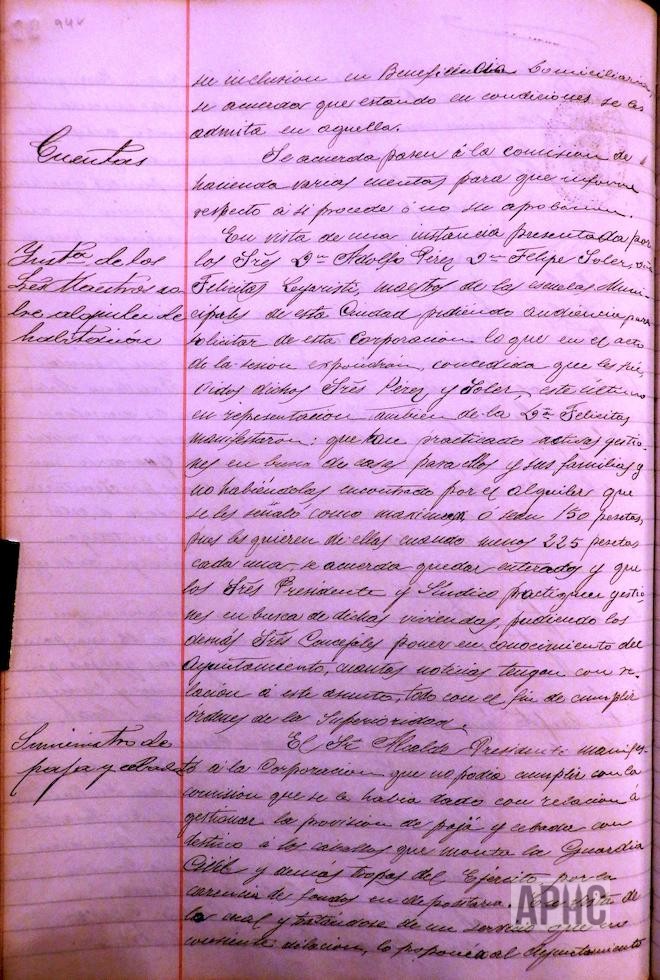 su inclusión en Beneficencia Domiciliaria,
se acuerda que estando en condiciones se les
admita en aquella.
Cuentas
Se acuerda pasen á la comision de
hacienda varias cuentas para que informe
respecto á si procede ó no su aprobacion.
Inst.ª de los
Sres Maestros so
bre alquiler de
habitación
En vista de una instancia presentada por
los Srēs Dn Adolfo Perez Dn Felipe Soler,
Felicitas maestros de las escuelas Muni-
cipales de esta Ciudad pidiendo audiencia para
solicitar de esta Corporacion lo que en el acto
de la sesion expondrán, concedida que les fue,
oidos dichos Srēs Pérez y Soler, este último
en representacion tambien de la Dª Felicitas
manifestaron: que han practicado activas gestio-
nes en busca de casas para ellos y sus familias y
no habiéndolas encontrado por el alquiler que
se les señaló como maximun ó sean 150 pesetas,
pues les quieren de ellas cuando menos 225 pesetas
cada una, se acuerda quedar enterados y que
los Srēs Presidente y Síndico practiquen gestio-
nes en busca de dichas viviendas, pudiendo los
demás Srēs Concejales poner en conocimiento del
Ayuntamiento, cuantas noticias tengan con re-
lación á este asunto, todo con el fin de cumplir
órdenes de la Superioridad.
Suministro de
paja y cebada
El Sr Alcalde Presidente manifes-
tó á la Corporacion que no podia cumplir con la
comision que se le habia dado con relacion á
gestionar la provision de paja y cebada con
destino á los caballos que monta la Guardia
Civil y demás tropas del Ejército por la
carencia de fondos en depositaria. En vista de
lo cual y tratándose de un servicio que no
consiente dilacion, lo proponia al Ayuntamiento
APHC